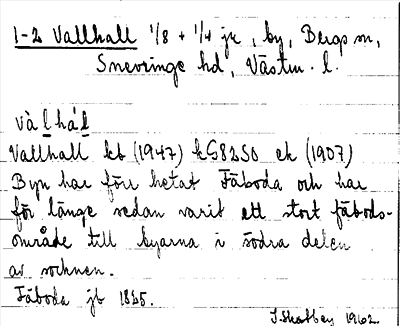 1-2 Vallhall 1/8 + 1/4 jr, by, Bergs sn,
Snevringe hd, Västm. l.
vàlhál
Vallhall kb (1947) kG82S0 ek (1907)
Byn har förr hetat Fäboda och har
för länge sedan varit ett stort fäbods-
område till byarna i södra delen
av socknen.
Fäboda jb 1825.
1962